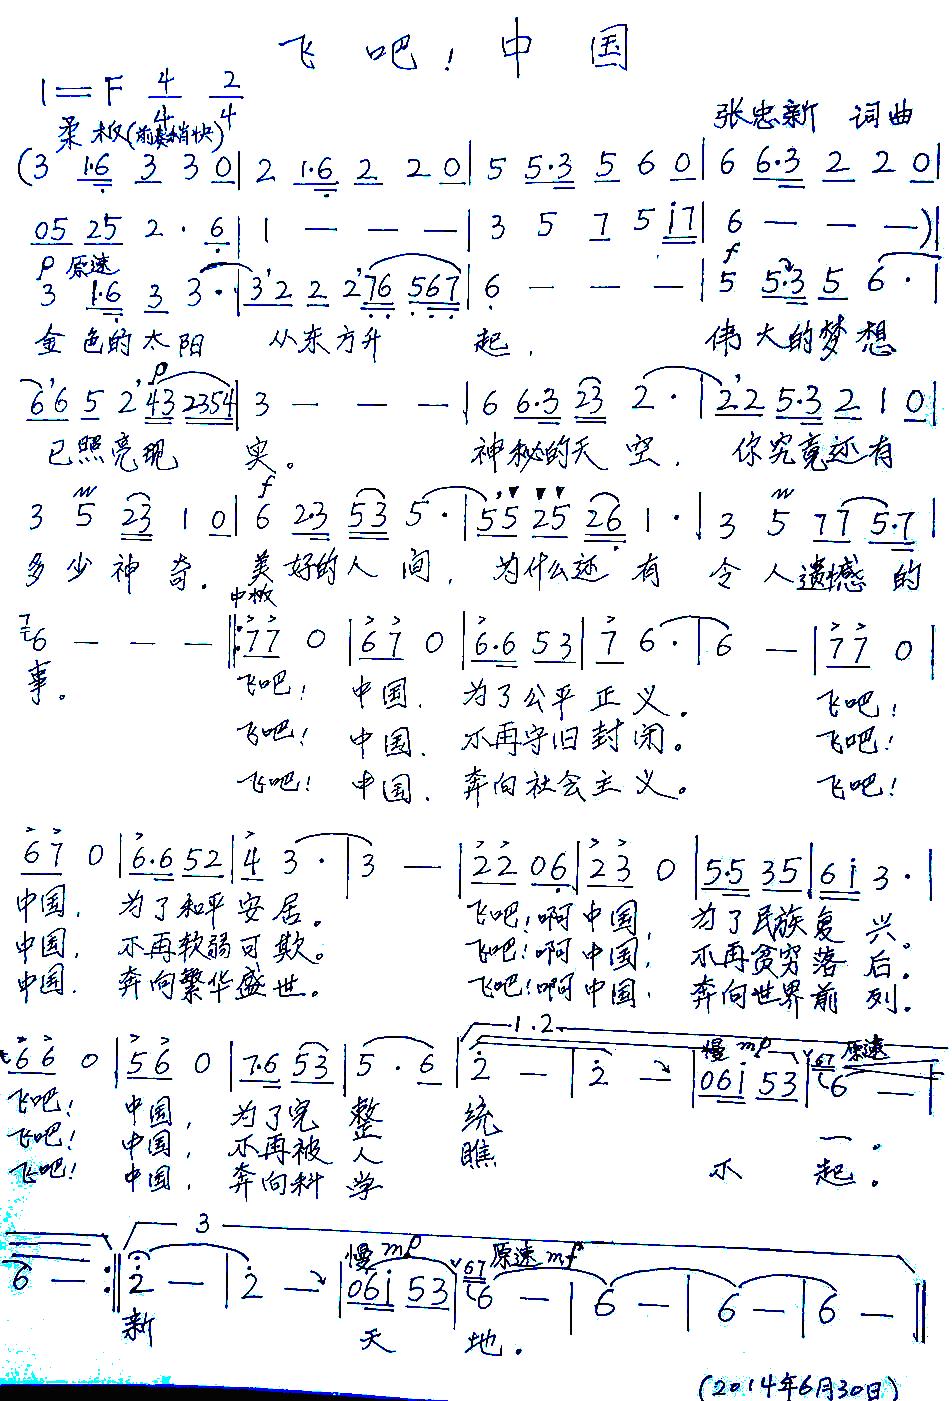 飞 吧！中 国
1=F 4/4 2/4
张忠新 词曲
柔板(前奏稍快)
(3 1·6 3 3 0| 2 1·6 2 2 0| 5 5·3 5 6 0| 6 6·3 2 2 0|
05 25 2· 6| 1 — — —| 3 5 7 5 i7| 6 — — —)|
p 原速 f
3 1·6 3 3·| 3'2 2 2'76 567| 6 — — —| 5 5·3 5 6·|
金色的太阳 从东方升 起， 伟大的梦想
p
6'6 5 2'43 2354| 3 — — —| 6 6·3 23 2·| 2'2 5·3 2 1 0|
已照亮现 实。 神秘的天空， 你究竟还有
f
3 5 23 1 0| 6 2·3 53 5·| 5'5 25 26 1·| 3 5 77 5·7|
多少神奇。 美好的人间， 为什么还有 令人遗憾的
中板
6 — — —‖: 77 0| 67 0| 6·6 53| 7 6·| 6 —| 77 0|
事。 飞吧！ 中国， 为了公平正义。 飞吧！
飞吧！ 中国， 不再守旧封闭。 飞吧！
飞吧！ 中国， 奔向社会主义。 飞吧！
67 0| 6·6 52| 4 3·| 3 —| 22 06| 23 0| 5·5 35| 6i 3·|
中国， 为了和平安居。 飞吧！啊中国， 为了民族复兴。
中国， 不再软弱可欺。 飞吧！啊中国， 不再贫穷落后。
中国， 奔向繁华盛世。 飞吧！啊中国， 奔向世界前列。
1.2 慢 mp 原速
66 0| 56 0| 7·6 53| 5· 6| 2 —| 2 —| 06i 53| 67 6 —|
飞吧！ 中国， 为了完整 统 一。
飞吧！ 中国， 不再被人 瞧 不 起。
飞吧！ 中国， 奔向科学
3 慢 mp 原速 mf
6 — :‖ 2 —| 2 —| 06i 53| 67 6 —| 6 —| 6 —| 6 —‖
新 天 地。
(2014年6月30日)